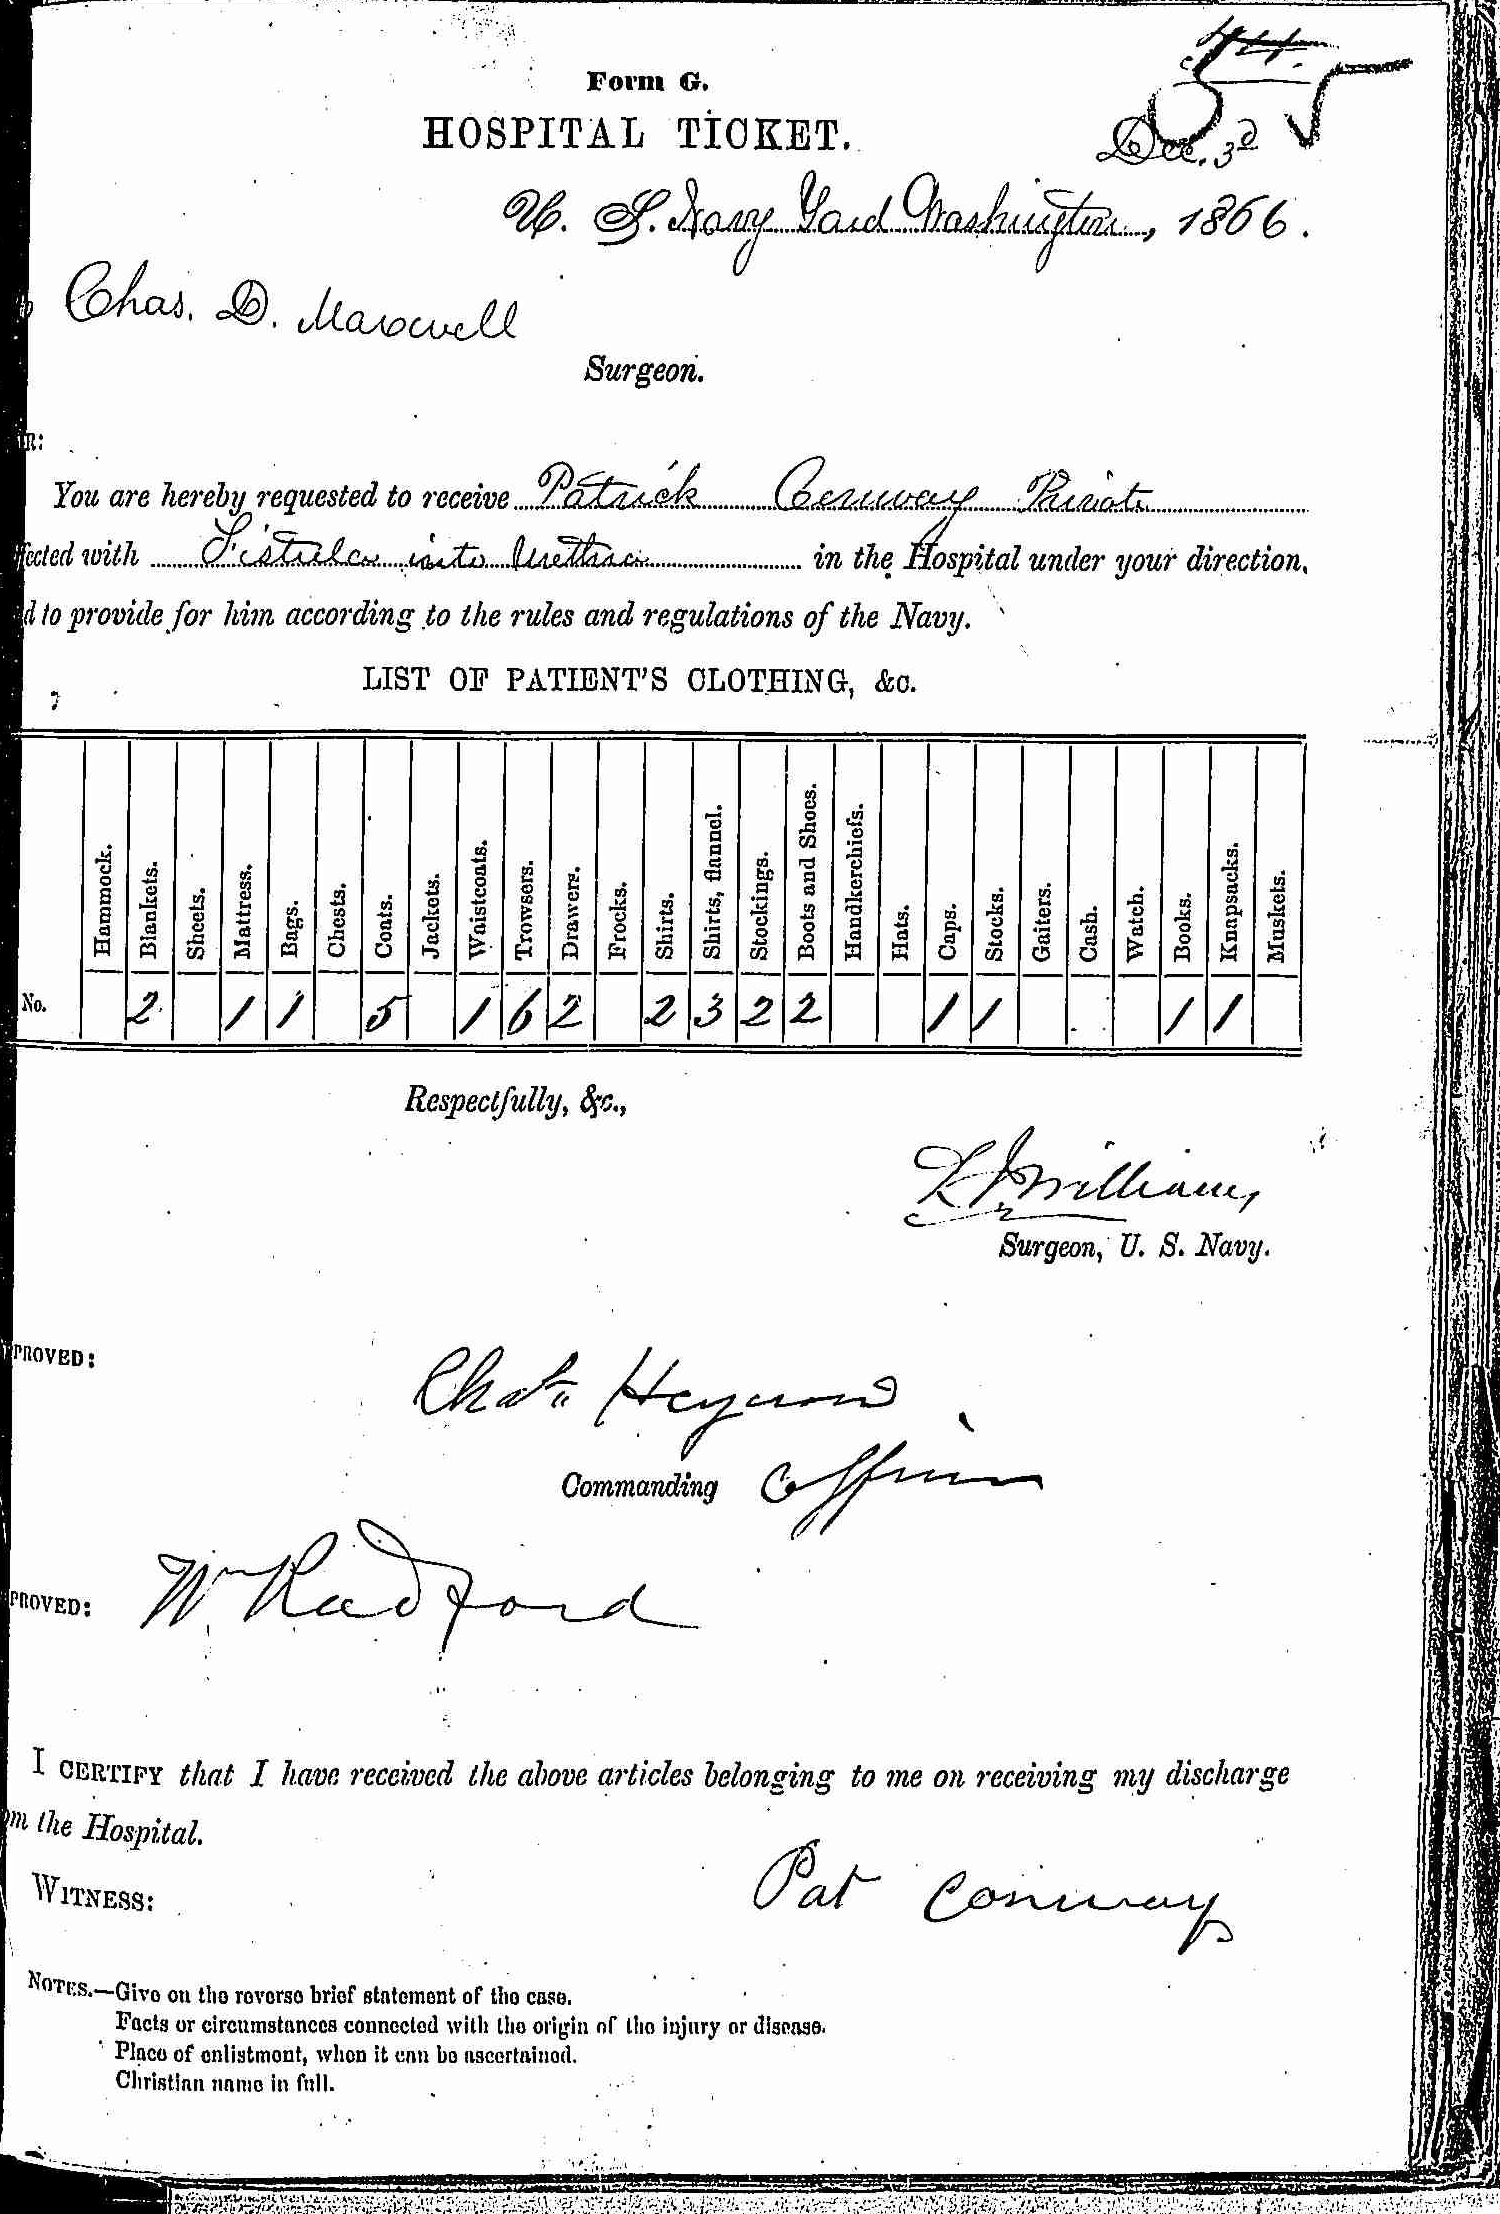 44.
Form G.
HOSPITAL TICKET.
Dec. 3d
U. S. Navy Yard Washington, 1866.
Chas. D. Maxwell
Surgeon.
R:
You are hereby requested to receive Patrick Conway Private
fected with Fistula into Urethra in the Hospital under your direction,
d to provide for him according to the rules and regulations of the Navy.
LIST OF PATIENT'S CLOTHING, &c.
Hammock. Blankets. Sheets. Mattress. Bags. Chests. Coats. Jackets. Waistcoats. Trowsers. Drawers. Frocks. Shirts. Shirts, flannel. Stockings. Boots and Shoes. Handkerchiefs. Hats. Caps. Stocks. Gaiters. Cash. Watch. Books. Knapsacks. Muskets.
No. 2 1 1 5 1 6 2 2 3 2 2 1 1 1 1
Respectfully, &c.,
Williams
Surgeon, U. S. Navy.
PROVED:
Heywood
Commanding Officer
PROVED: Wm Radford
I CERTIFY that I have received the above articles belonging to me on receiving my discharge
om the Hospital.
WITNESS:
Pat Conway
NOTES.—Give on the reverse brief statement of the case.
Facts or circumstances connected with the origin of the injury or disease.
Place of enlistment, when it can be ascertained.
Christian name in full.